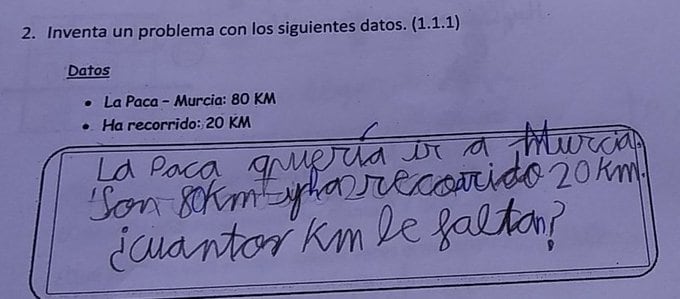 2. Inventa un problema con los siguientes datos. (1.1.1)
Datos
• La Paca - Murcia: 80 KM
• Ha recorrido: 20 KM
La Paca quería ir a Murcia.
Son 80Km y ha recorrido 20 Km.
¿cuantos Km le faltan?